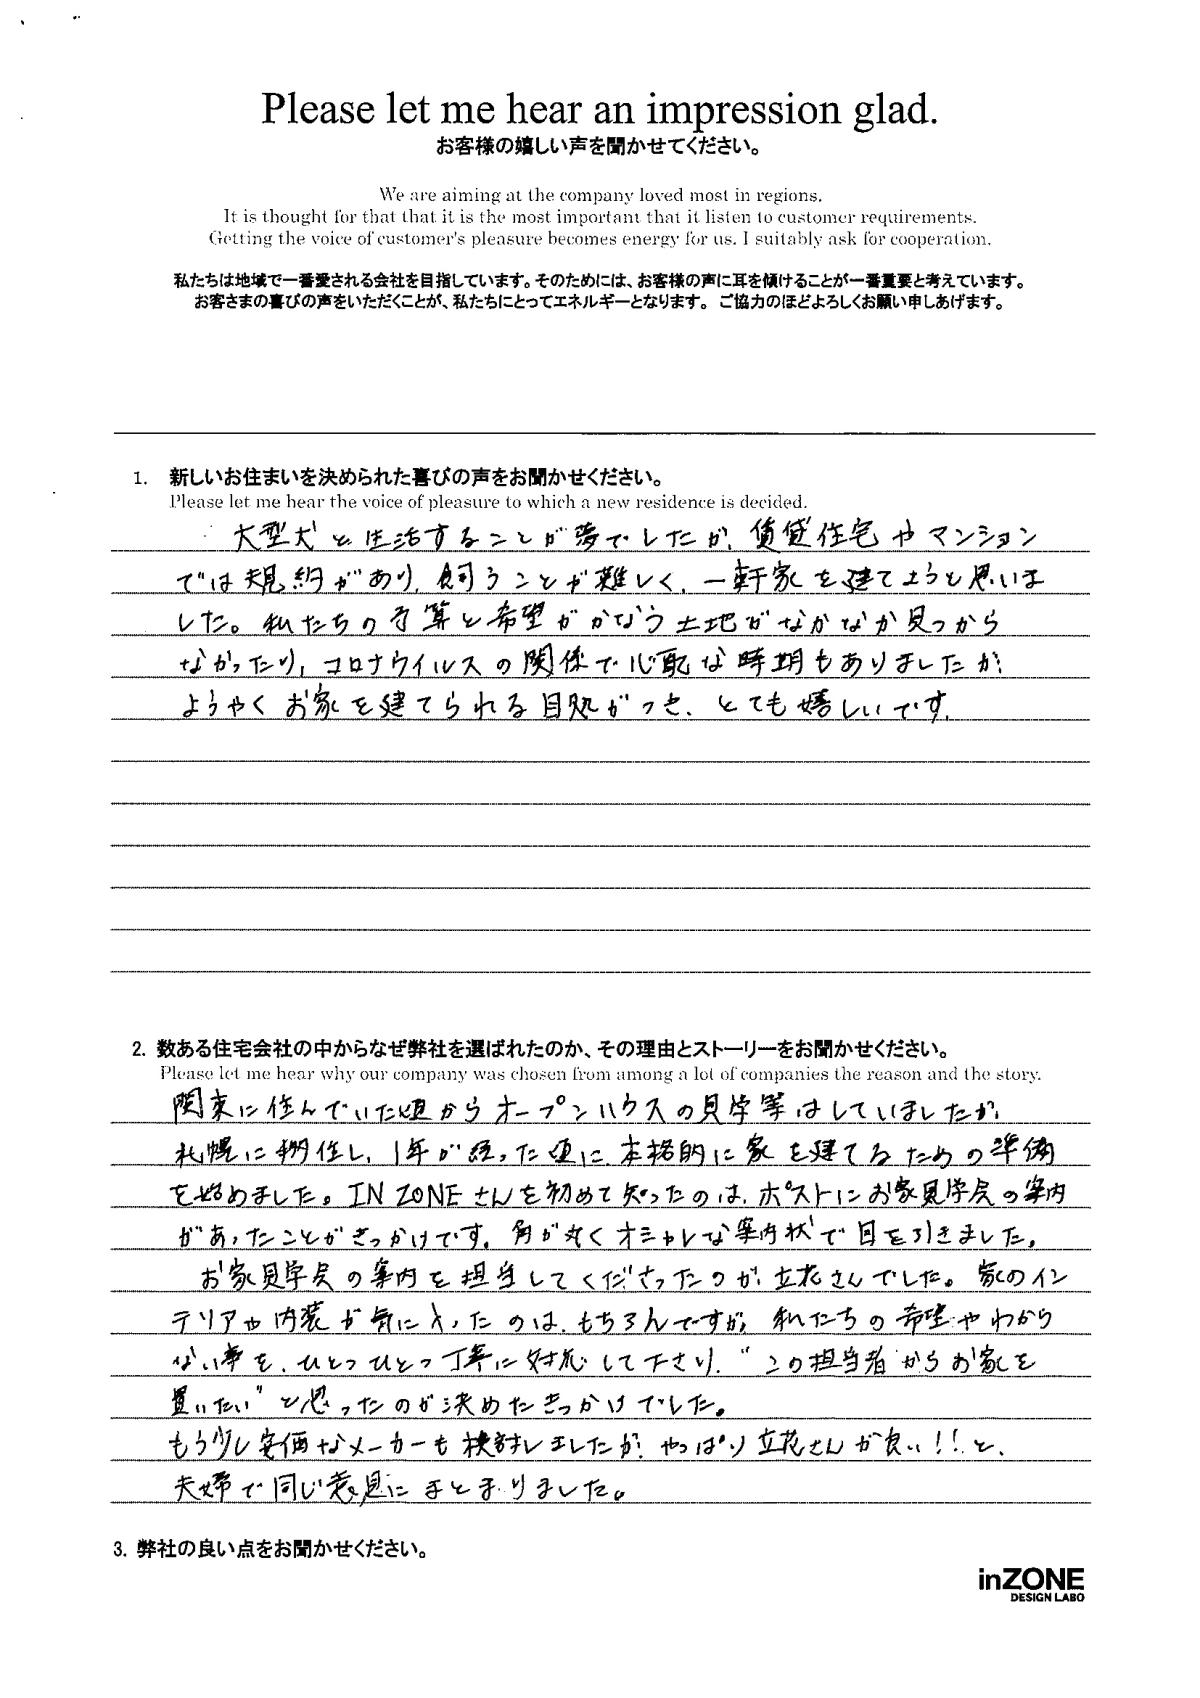 Please let me hear an impression glad.
お客様の嬉しい声を聞かせてください。
We are aiming at the company loved most in regions.
It is thought for that that it is the most important that it listen to customer requirements.
Getting the voice of customer's pleasure becomes energy for us. I suitably ask for cooperation.
私たちは地域で一番愛される会社を目指しています。そのためには、お客様の声に耳を傾けることが一番重要と考えています。
お客さまの喜びの声をいただくことが、私たちにとってエネルギーとなります。 ご協力のほどよろしくお願い申しあげます。
1. 新しいお住まいを決められた喜びの声をお聞かせください。
Please let me hear the voice of pleasure to which a new residence is decided.
大型犬と生活することが夢でしたが、賃貸住宅やマンション
では規約があり、飼うことが難しく、一軒家を建てようと思いま
した。私たちの予算と希望がかなう土地がなかなか見つから
なかったり、コロナウイルスの関係で心配な時期もありましたが、
ようやくお家を建てられる目処がつき、とても嬉しいです。
2. 数ある住宅会社の中からなぜ弊社を選ばれたのか、その理由とストーリーをお聞かせください。
Please let me hear why our company was chosen from among a lot of companies the reason and the story.
関東に住んでいた頃からオープンハウスの見学等はしていましたが、
札幌に移住し、1年が経った頃に、本格的に家を建てるための準備
を始めました。IN ZONEさんを初めて知ったのは、ポストにお家見学展の案内
があったことがきっかけです。角が丸くオシャレな案内状で目を引きました。
お家見学展の案内を担当してくださったのが、立花さんでした。家のイン
テリアや内装が気に入ったのは、もちろんですが、私たちの希望やわから
ない事を、ひとつひとつ丁寧に対応して下さり、"この担当者からお家を
買いたい"と思ったのが決めたきっかけでした。
もう少し安価なメーカーも検討しましたが、やっぱり立花さんが良い!!と、
夫婦で同じ意見にまとまりました。
3. 弊社の良い点をお聞かせください。
inZONE
DESIGN LABO